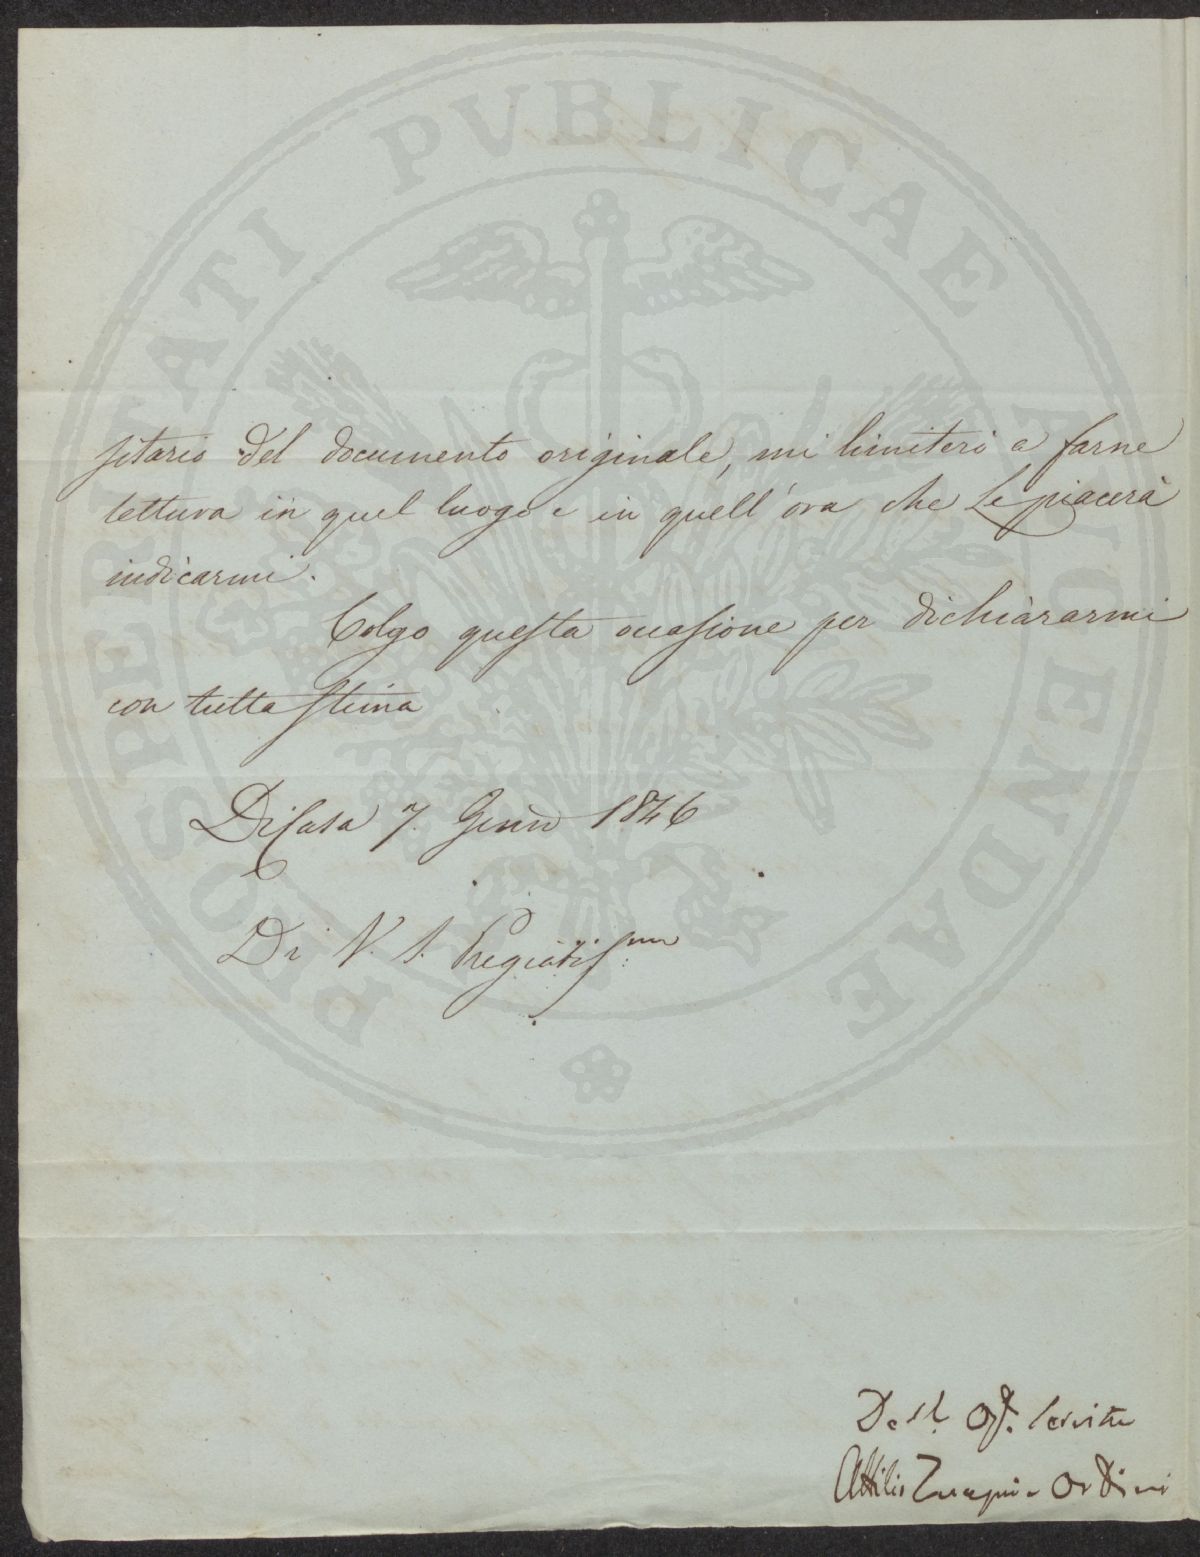 PROSPERITATI PUBLICAE AUGENDAE
sitario del documento originale, mi limiterò a farne
lettura in quel luogo e in quell'ora che Le piacerà
indicarmi.
Colgo questa occasione per dichiararmi
con tutta stima
Di Casa 7. Genn 1846
Di V. S. Pregiatis:ma
Dev. Obb. Servitu
Attilio Zuccagni Orlandini